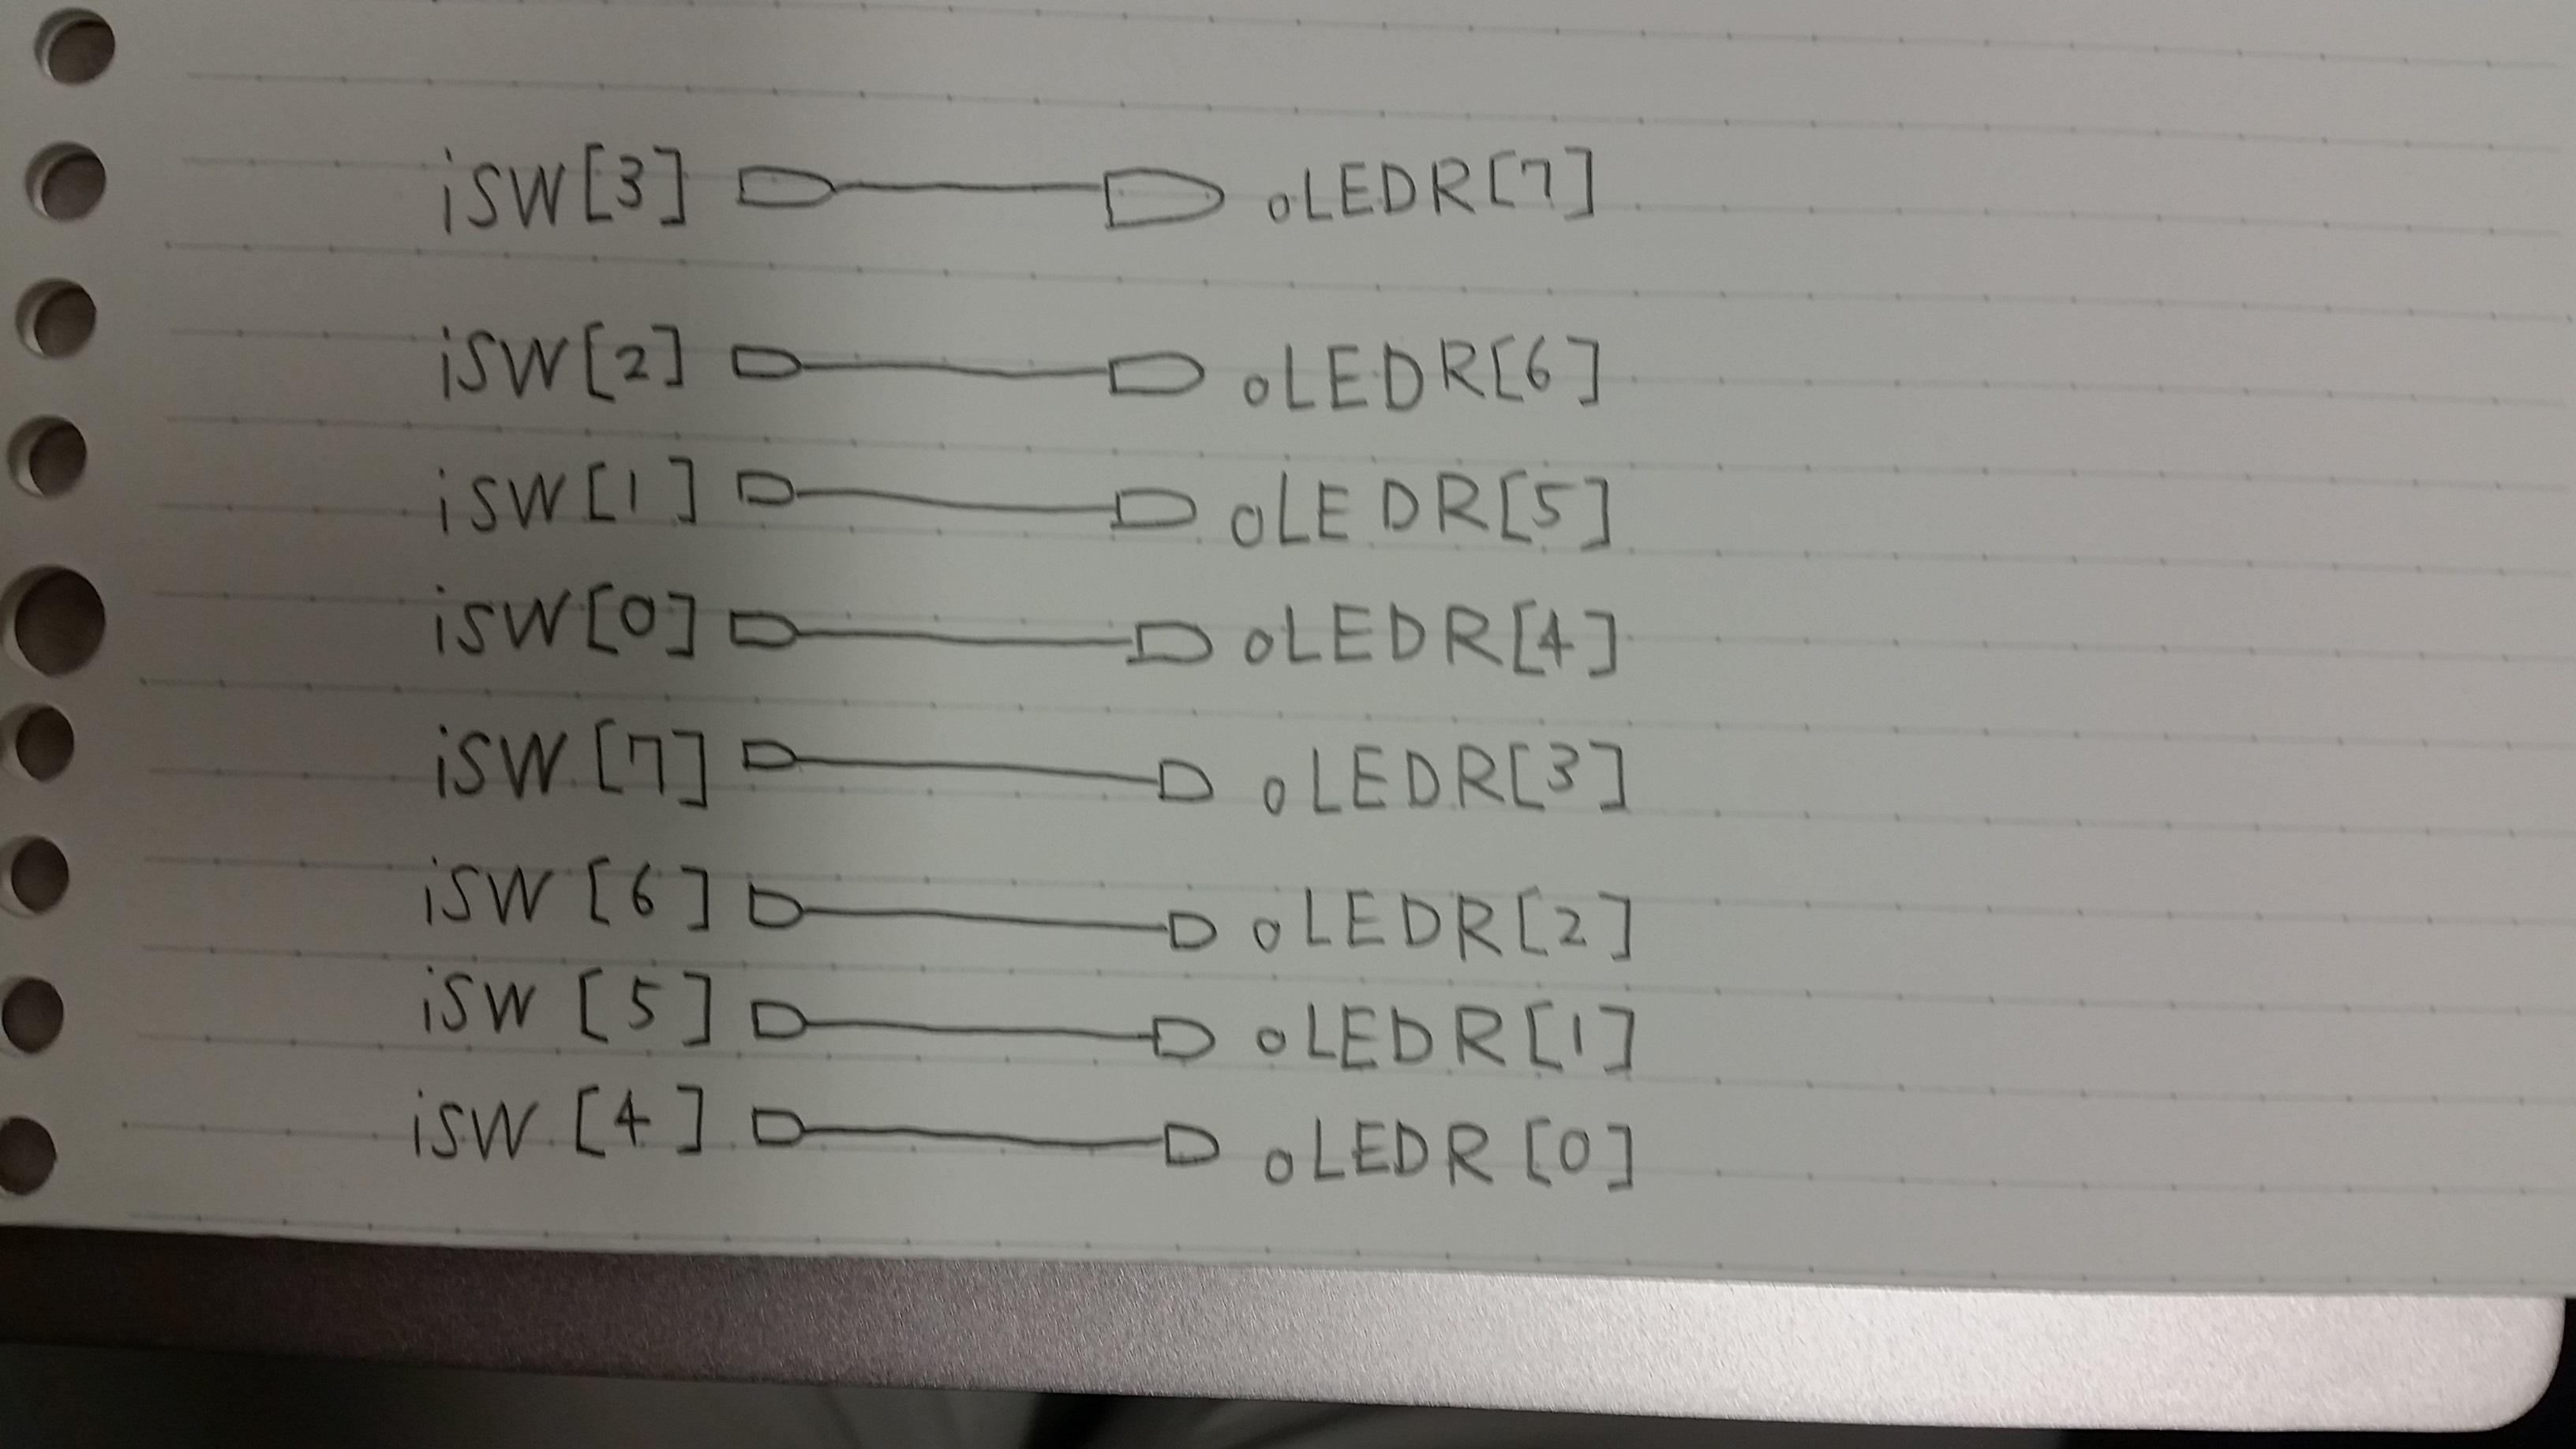 iSW[3] oLEDR[7]
iSW[2] oLEDR[6]
iSW[1] oLEDR[5]
iSW[0] oLEDR[4]
iSW[7] oLEDR[3]
iSW[6] oLEDR[2]
iSW[5] oLEDR[1]
iSW[4] oLEDR[0]